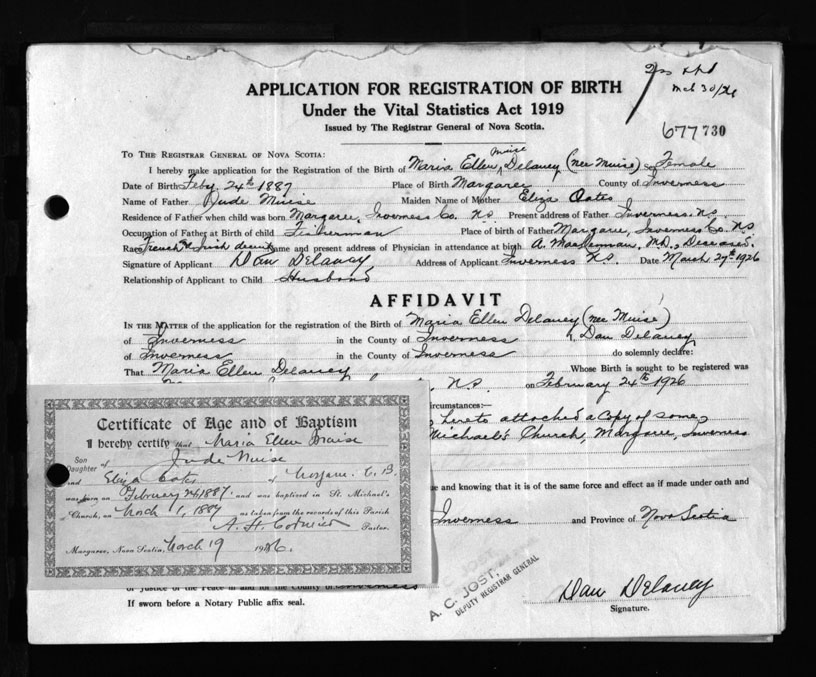 APPLICATION FOR REGISTRATION OF BIRTH
Under the Vital Statistics Act 1919
Issued by The Registrar General of Nova Scotia.
Mch 30/26
677730
TO THE REGISTRAR GENERAL OF NOVA SCOTIA:
Muise
I hereby make application for the Registration of the Birth of Maria Ellen Delaney (nee Muise) Female
Date of Birth Feby 24th 1887 Place of Birth Margaree County of Inverness
Name of Father Jude Muise Maiden Name of Mother Eliza Oates
Residence of Father when child was born Margaree, Inverness Co. N.S. Present address of Father Inverness N.S.
Occupation of Father at Birth of child Fisherman Place of birth of Father Margaree, Inverness Co. N.S.
Race French & Irish descent Name and present address of Physician in attendance at birth A. M.D., Deceased.
Signature of Applicant Dan Delaney Address of Applicant Inverness N.S. Date March 27th 1926
Relationship of Applicant to Child Husband
AFFIDAVIT
IN THE MATTER of the application for the registration of the Birth of Maria Ellen Delaney (nee Muise)
of Inverness in the County of Inverness I, Dan Delaney
of Inverness in the County of Inverness do solemnly declare:
That Maria Ellen Delaney Whose Birth is sought to be registered was
N.S. on February 24th 1926
circumstances:—
hereto attached a copy of same,
Michael's Church, Margaree, Inverness
e and knowing that it is of the same force and effect as if made under oath and
Inverness and Province of Nova Scotia
Certificate of Age and of Baptism
I hereby certify that Maria Ellen
Son
Daughter of Jude Muise
and Eliza Oates of Margaree C.B.
was born on February 24, 1887 and was baptized in St. Michael's
Church, on March 1, 1887 as taken from the records of this Parish
A. H. Cormier Pastor.
Margaree, Nova Scotia, March 19 1926.
of Justice of the Peace in and for the County of Inverness
If sworn before a Notary Public affix seal.
A. C. JOST,
DEPUTY REGISTRAR GENERAL
Dan Delaney
Signature.